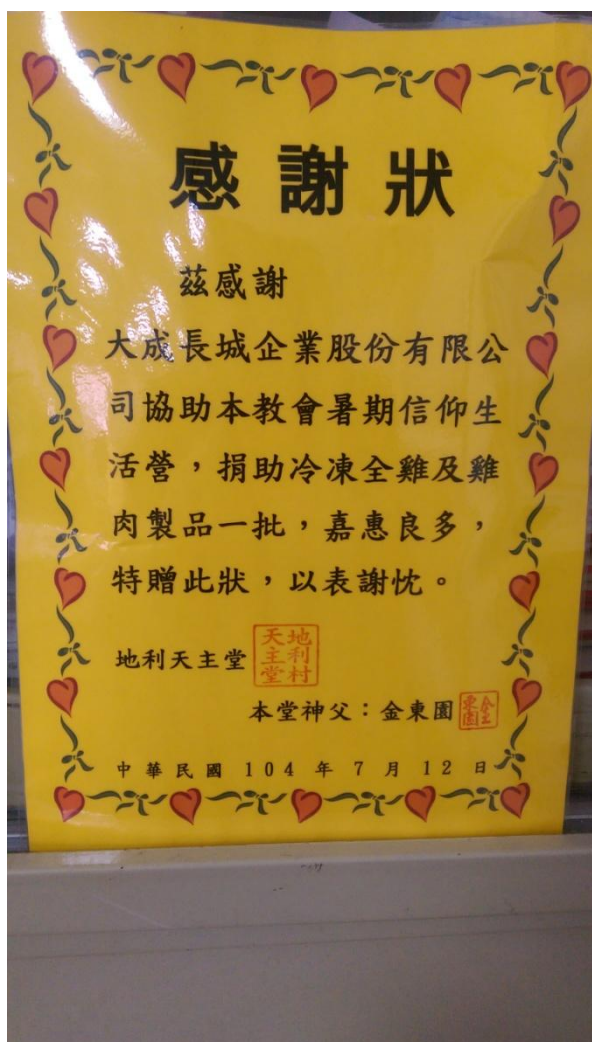 感謝狀
茲感謝
大成長城企業股份有限公
司協助本教會暑期信仰生
活營，捐助冷凍全雞及雞
肉製品一批，嘉惠良多，
特贈此狀，以表謝忱。
地利天主堂
地利村
天主堂
本堂神父：金東園
金東園
中華民國 104 年 7 月 12 日